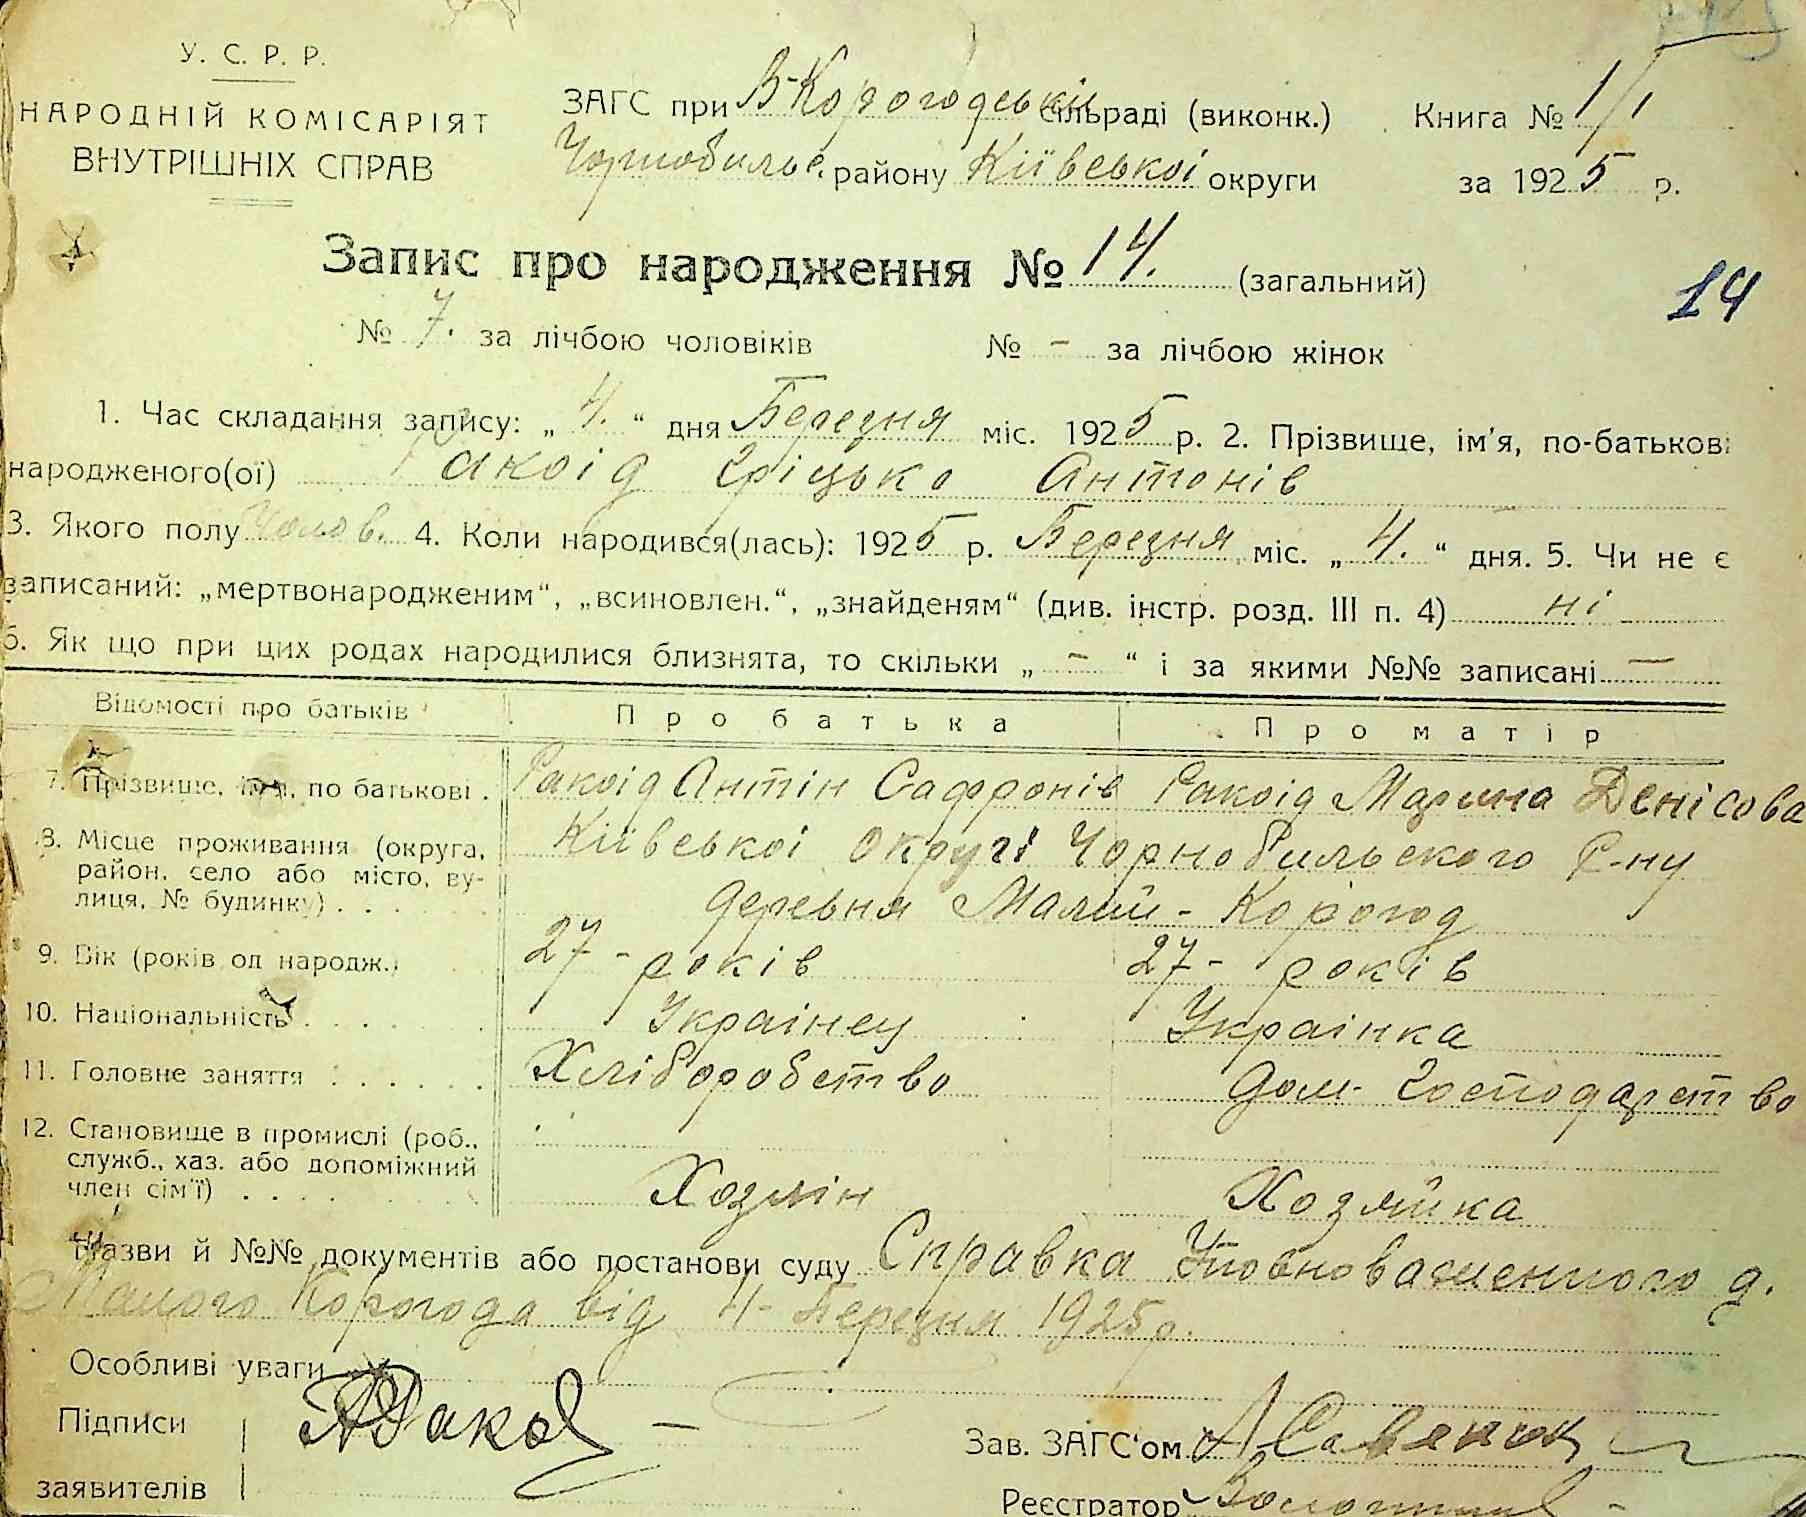 У. С. Р. Р.
НАРОДНІЙ КОМІСАРІЯТ
ВНУТРІШНІХ СПРАВ
ЗАГС при В-Корогодській сільраді (виконк.) Книга № 1/1
Чорнобильс. району Київської округи за 1925 р.
Запис про народження № 14. (загальний)
14
№ 7. за лічбою чоловіків № - за лічбою жінок
1. Час складання запису: „ 4. “ дня Березня міс. 1925 р. 2. Прізвище, ім'я, по-батькові
народженого(ої) Ракоід Гріцько Антонів
3. Якого полу Чолов. 4. Коли народився(лась): 1925 р. Березня міс. „ 4. “ дня. 5. Чи не є
записаний: „мертвонародженим“, „всиновлен.“, „знайденям“ (див. інстр. розд. III п. 4) ні
6. Як що при цих родах народилися близнята, то скільки „ - “ і за якими №№ записані —
Відомості про батьків Про батька Про матір
7. Прізвище, ім'я, по батькові . Ракоід Антін Сафронів Ракоід Марина Денісова
8. Місце проживання (округа, район, село або місто, вулиця, № будинку) . . . . Київської округі Чорнобильского Р-ну
деревня Малий - Корогод
9. Вік (років од народж.) 27 - років 27 - років
10. Національність . . . . Українец Українка
11. Головне заняття . . . . . . Хліборобство Дом. Господарство
12. Становище в промислі (роб., служб., хаз. або допоміжний член сім'ї) . . . . Хозяін Хозяйка
Назви й №№ документів або постанови суду Справка Уповноваженного д.
Малого Корогода від 4 - Березня 1925 р.
Особливі уваги
Підписи
заявителів
Зав. ЗАГС'ом
Реєстратор